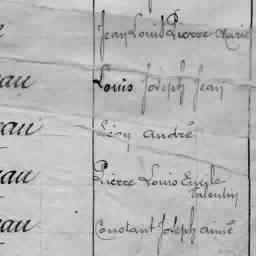 Jean Louis Pierre Marie
au Louis Joseph Jean
eau Léon André
eau Pierre Louis Emile
Valentin
eau Constant Joseph aimé